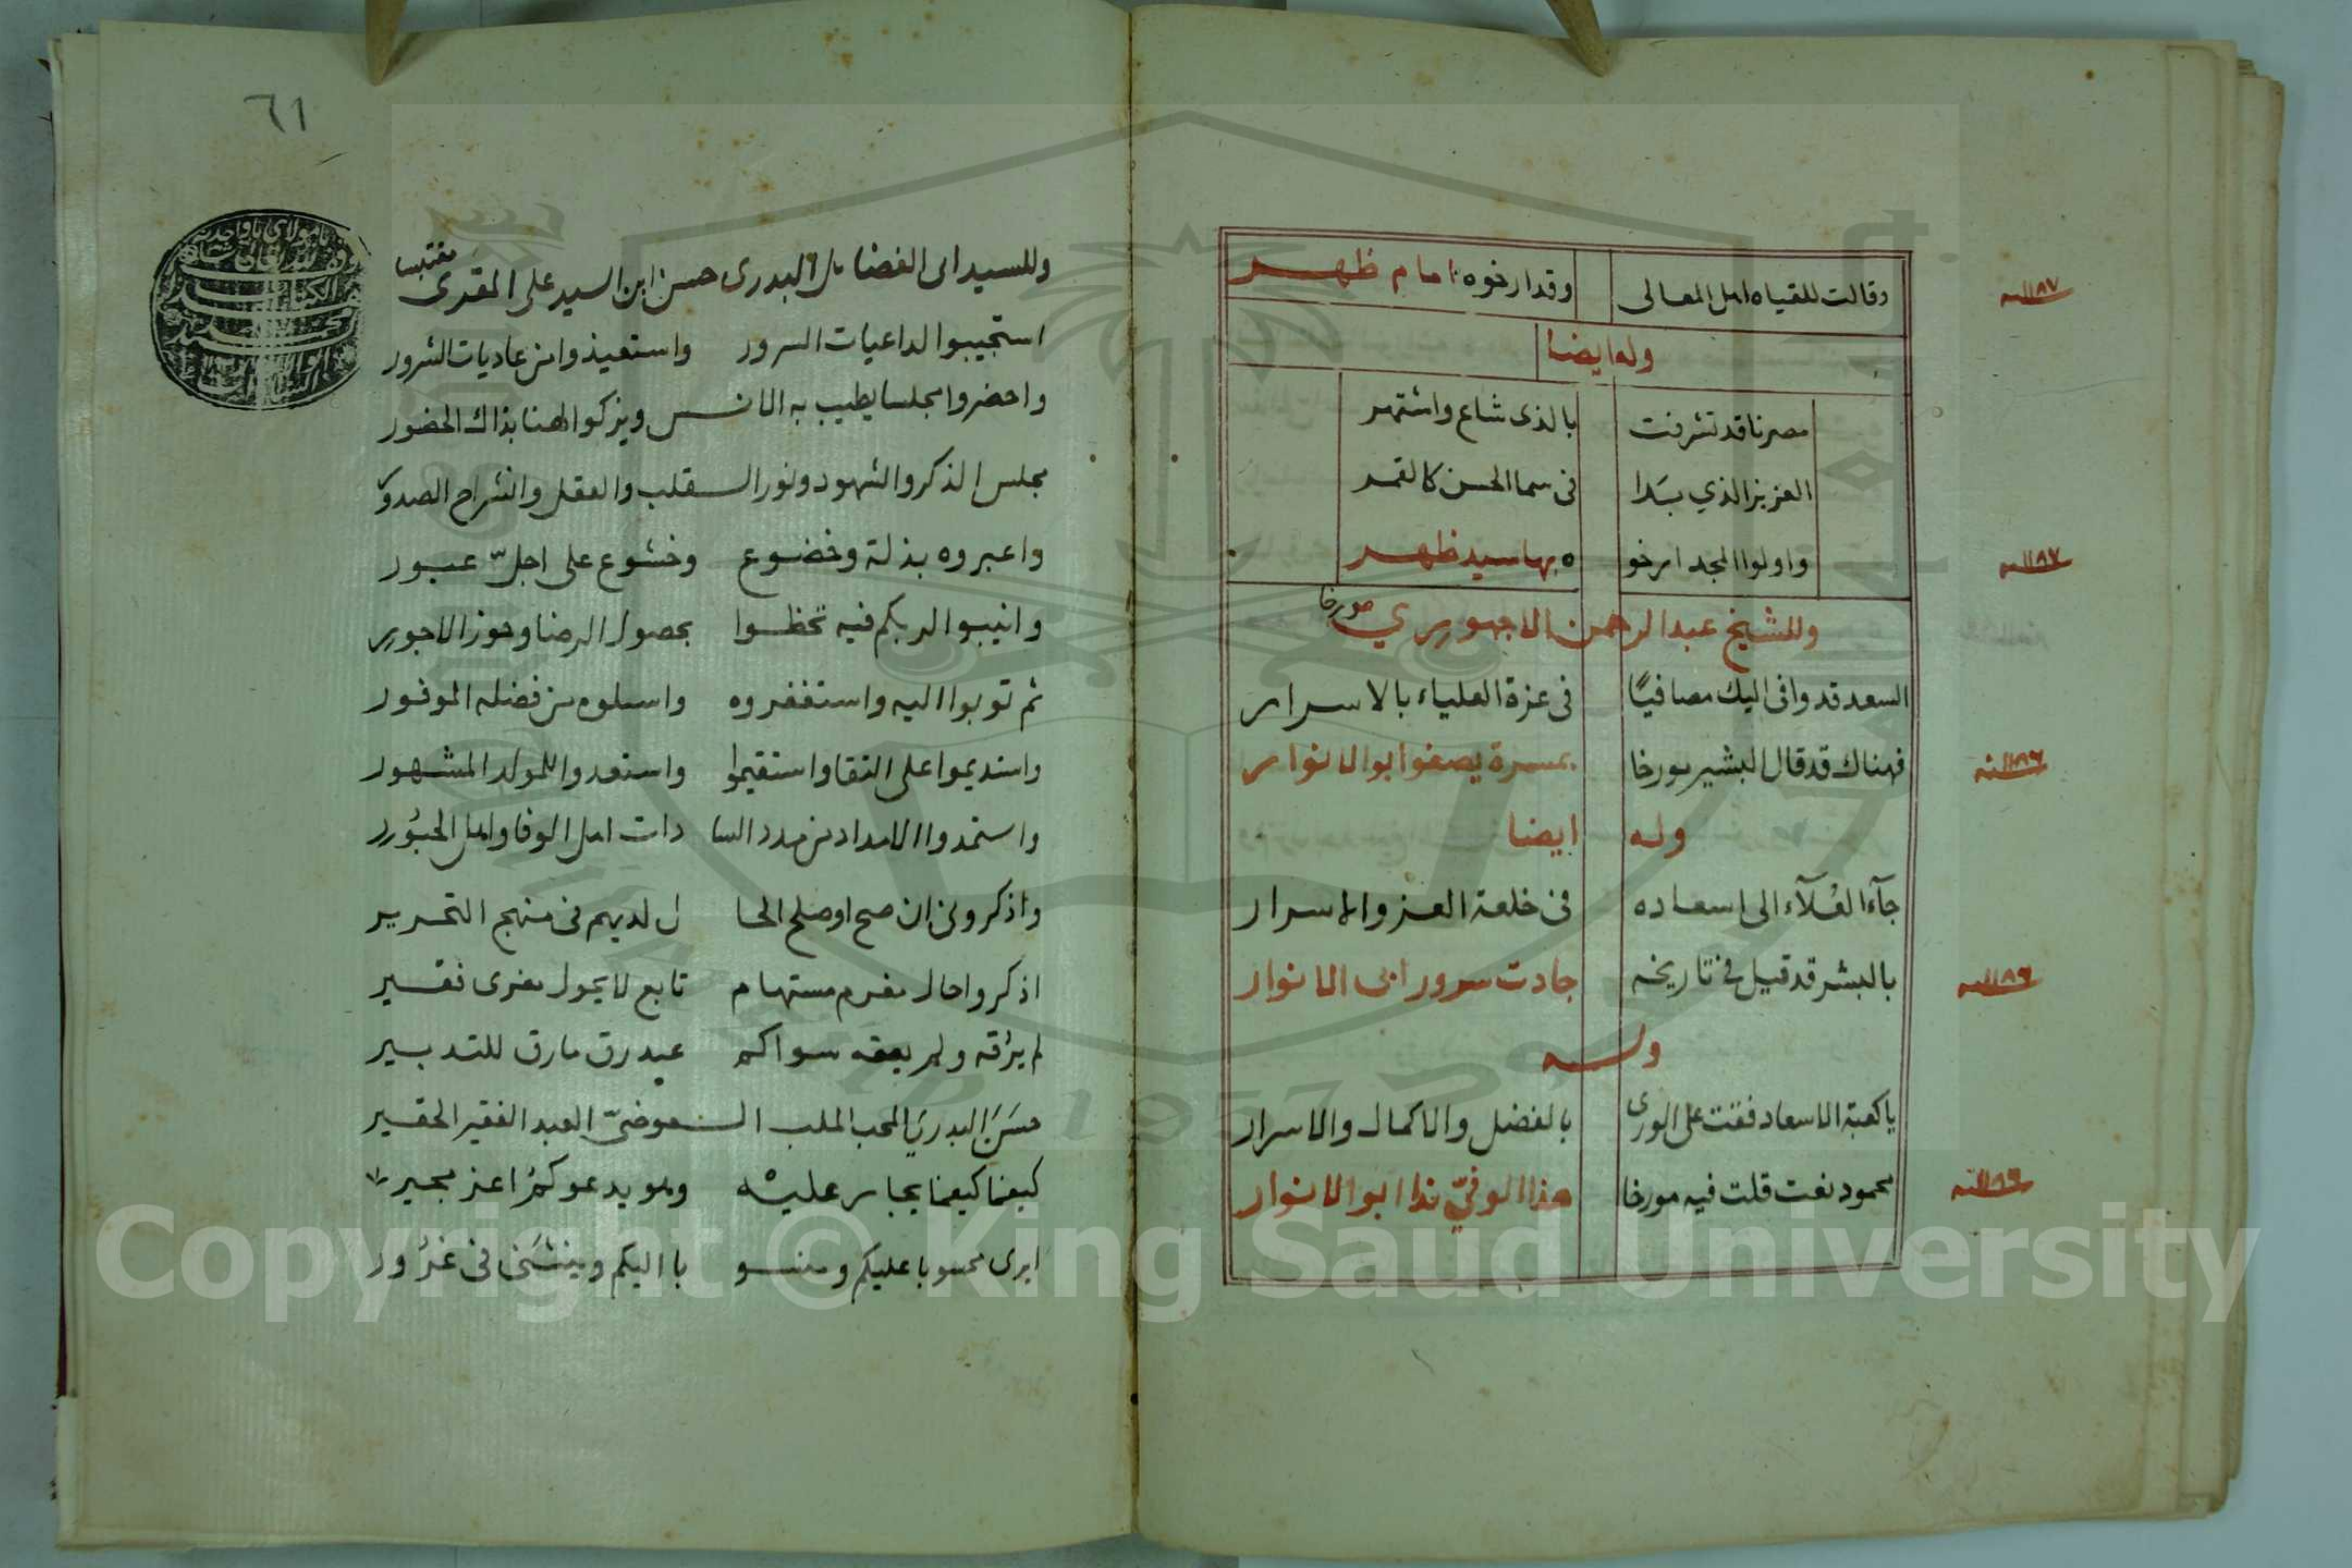 وقالت للقياه اهل المعالى وقد ارخوه امام ظهر ١١٨٧
وله ايضا
مصرنا قد تشرفت بالذى شاع واشتهر
العزيز الذي بدا فى سما الحسن كالقمر
واولوا المجد ارخوه بها سيد ظهر ١١٨٧
وللشيخ عبد الرحمن الاجهوري مورخا
السعد قد وافى اليك مصافيًا فى عزة العلياء بالاسرار
فهناك قد قال البشير مورخا بمسرة يصفوا ابو الانوار ١١٨٦
وله ايضا
جآء العُلآء الى اسعاده فى خلعة العز والاسرار
بالبشر قد قيل فى تاريخه جادت سرور ابى الانوار ١١٨٩
وله
يا كعبة الاسعاد فقت على الورى بالفضل والاكمال والاسرار
محمود نعت قلت فيه مورخا هذا الوفيّ ندا ابو الانوار ١١٨٩
٦١
وللسيد ابى الفضايل البدرى حسن ابن السيد على المقرى مقتبسا
استجيبوا لداعيات السرور واستعيذوا من عاديات الشرور
واحضروا مجلسا يطيب به الانس ويزكوا الهنا بذاك الحضور
مجلس الذكر والشهود ونور القلب والعقل وانشراح الصدور
واعبروه بذلة وخضوع وخشوع على اجلّ عبور
وانيبوا لربكم فيه تحظوا بحصول الرضا وحوز الاجور
ثم توبوا اليه واستغفروه واسلوه من فضله الموفور
واستديموا على التقا واستقيموا واستعدوا للمولد المشهور
واستمدوا الامداد من مدد السا دات اهل الوفا واهل الحبُور
واذكرونى ان صح او صلح الحا ل لديهم فى منهج التحرير
اذكروا حال مغرم مستهام تابع لا يحول مغرى فقير
لم يرُقه ولم يعقه سواكم عبد رق مارق للتدبير
حسَن البدرىَ المحب الملب العوضىّ العبد الفقير الحقير
كيفما كيفما يجار عليه وهو يدعوكمُ اعز مجير
ايرى محسوبا عليكم ومنسو با اليكم وينثنى فى غرُور
Copyright © King Saud University